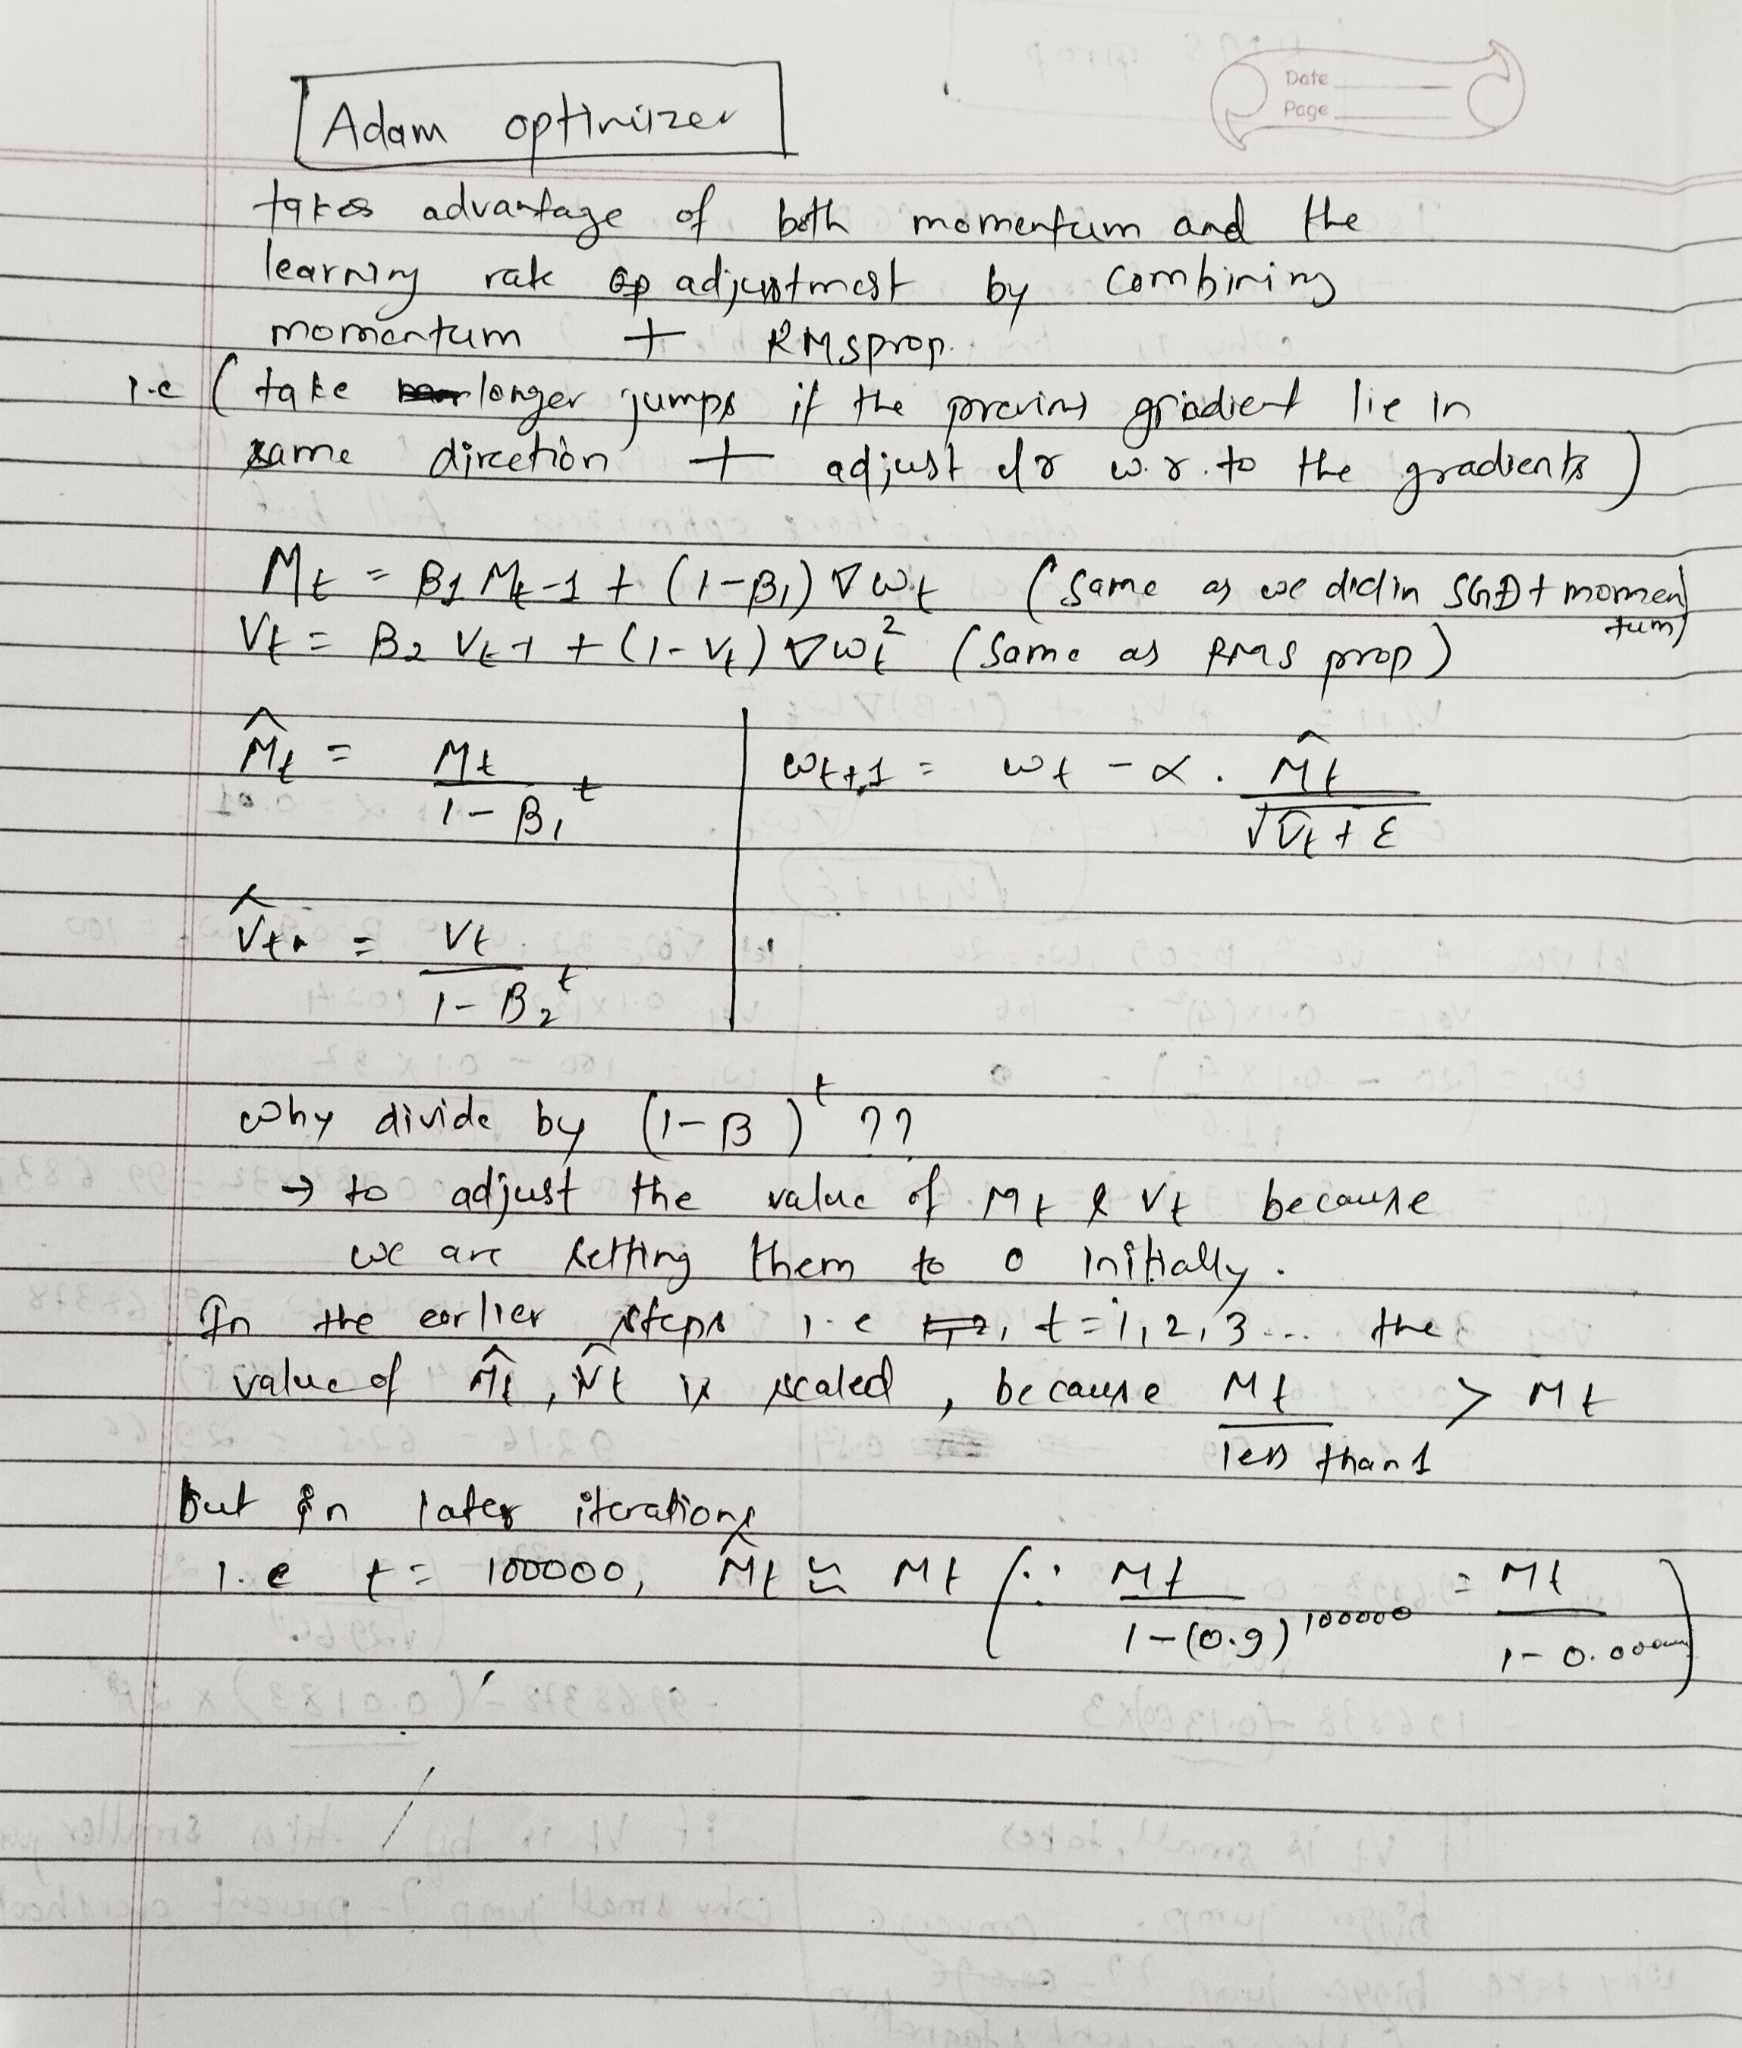 Date
Page
Adam optimizer
takes advantage of both momentum and the
learning rate adjustment by combining
momentum + RMSprop.
i.e ( take longer jumps if the previous gradient lie in
same direction + adjust lr w.r.to the gradients )
Mt = β1 Mt-1 + (1-β1) ∇wt (same as we did in SGD + momen
tum)
Vt = β2 Vt-1 + (1-Vt) ∇wt² (same as RMS prop)
M̂t = Mt / 1-β1^t
wt+1 = wt - α . M̂t / √V̂t + ε
V̂t = Vt / 1-β2^t
why divide by (1-β)^t ??
→ to adjust the value of Mt & Vt because
we are setting them to 0 initially.
In the earlier steps i.e t=1,2,3... the
value of M̂t, V̂t is scaled, because Mt / less than 1 > Mt
but in later iterations
i.e t = 100000, M̂t ≃ Mt (∵ Mt / 1-(0.9)^100000 = Mt / 1-0.000)